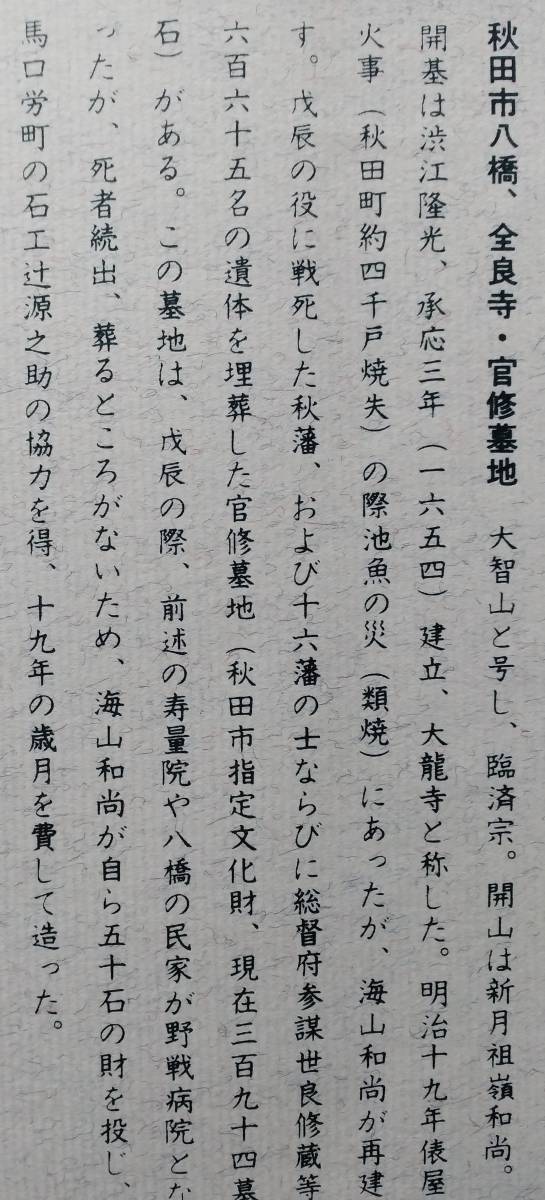 秋田市八橋、全良寺・官修墓地　大智山と号し、臨済宗。開山は新月祖嶺和尚。
開基は渋江隆光、承応三年（一六五四）建立、大龍寺と称した。明治十九年俵屋
火事（秋田町約四千戸焼失）の際池魚の災（類焼）にあったが、海山和尚が再建
す。戊辰の役に戦死した秋藩、および十六藩の士ならびに総督府参謀世良修蔵等
六百六十五名の遺体を埋葬した官修墓地（秋田市指定文化財、現在三百九十四墓
石）がある。この墓地は、戊辰の際、前述の寿量院や八橋の民家が野戦病院とな
ったが、死者続出、葬るところがないため、海山和尚が自ら五十石の財を投じ、
馬口労町の石工辻源之助の協力を得、十九年の歳月を費して造った。